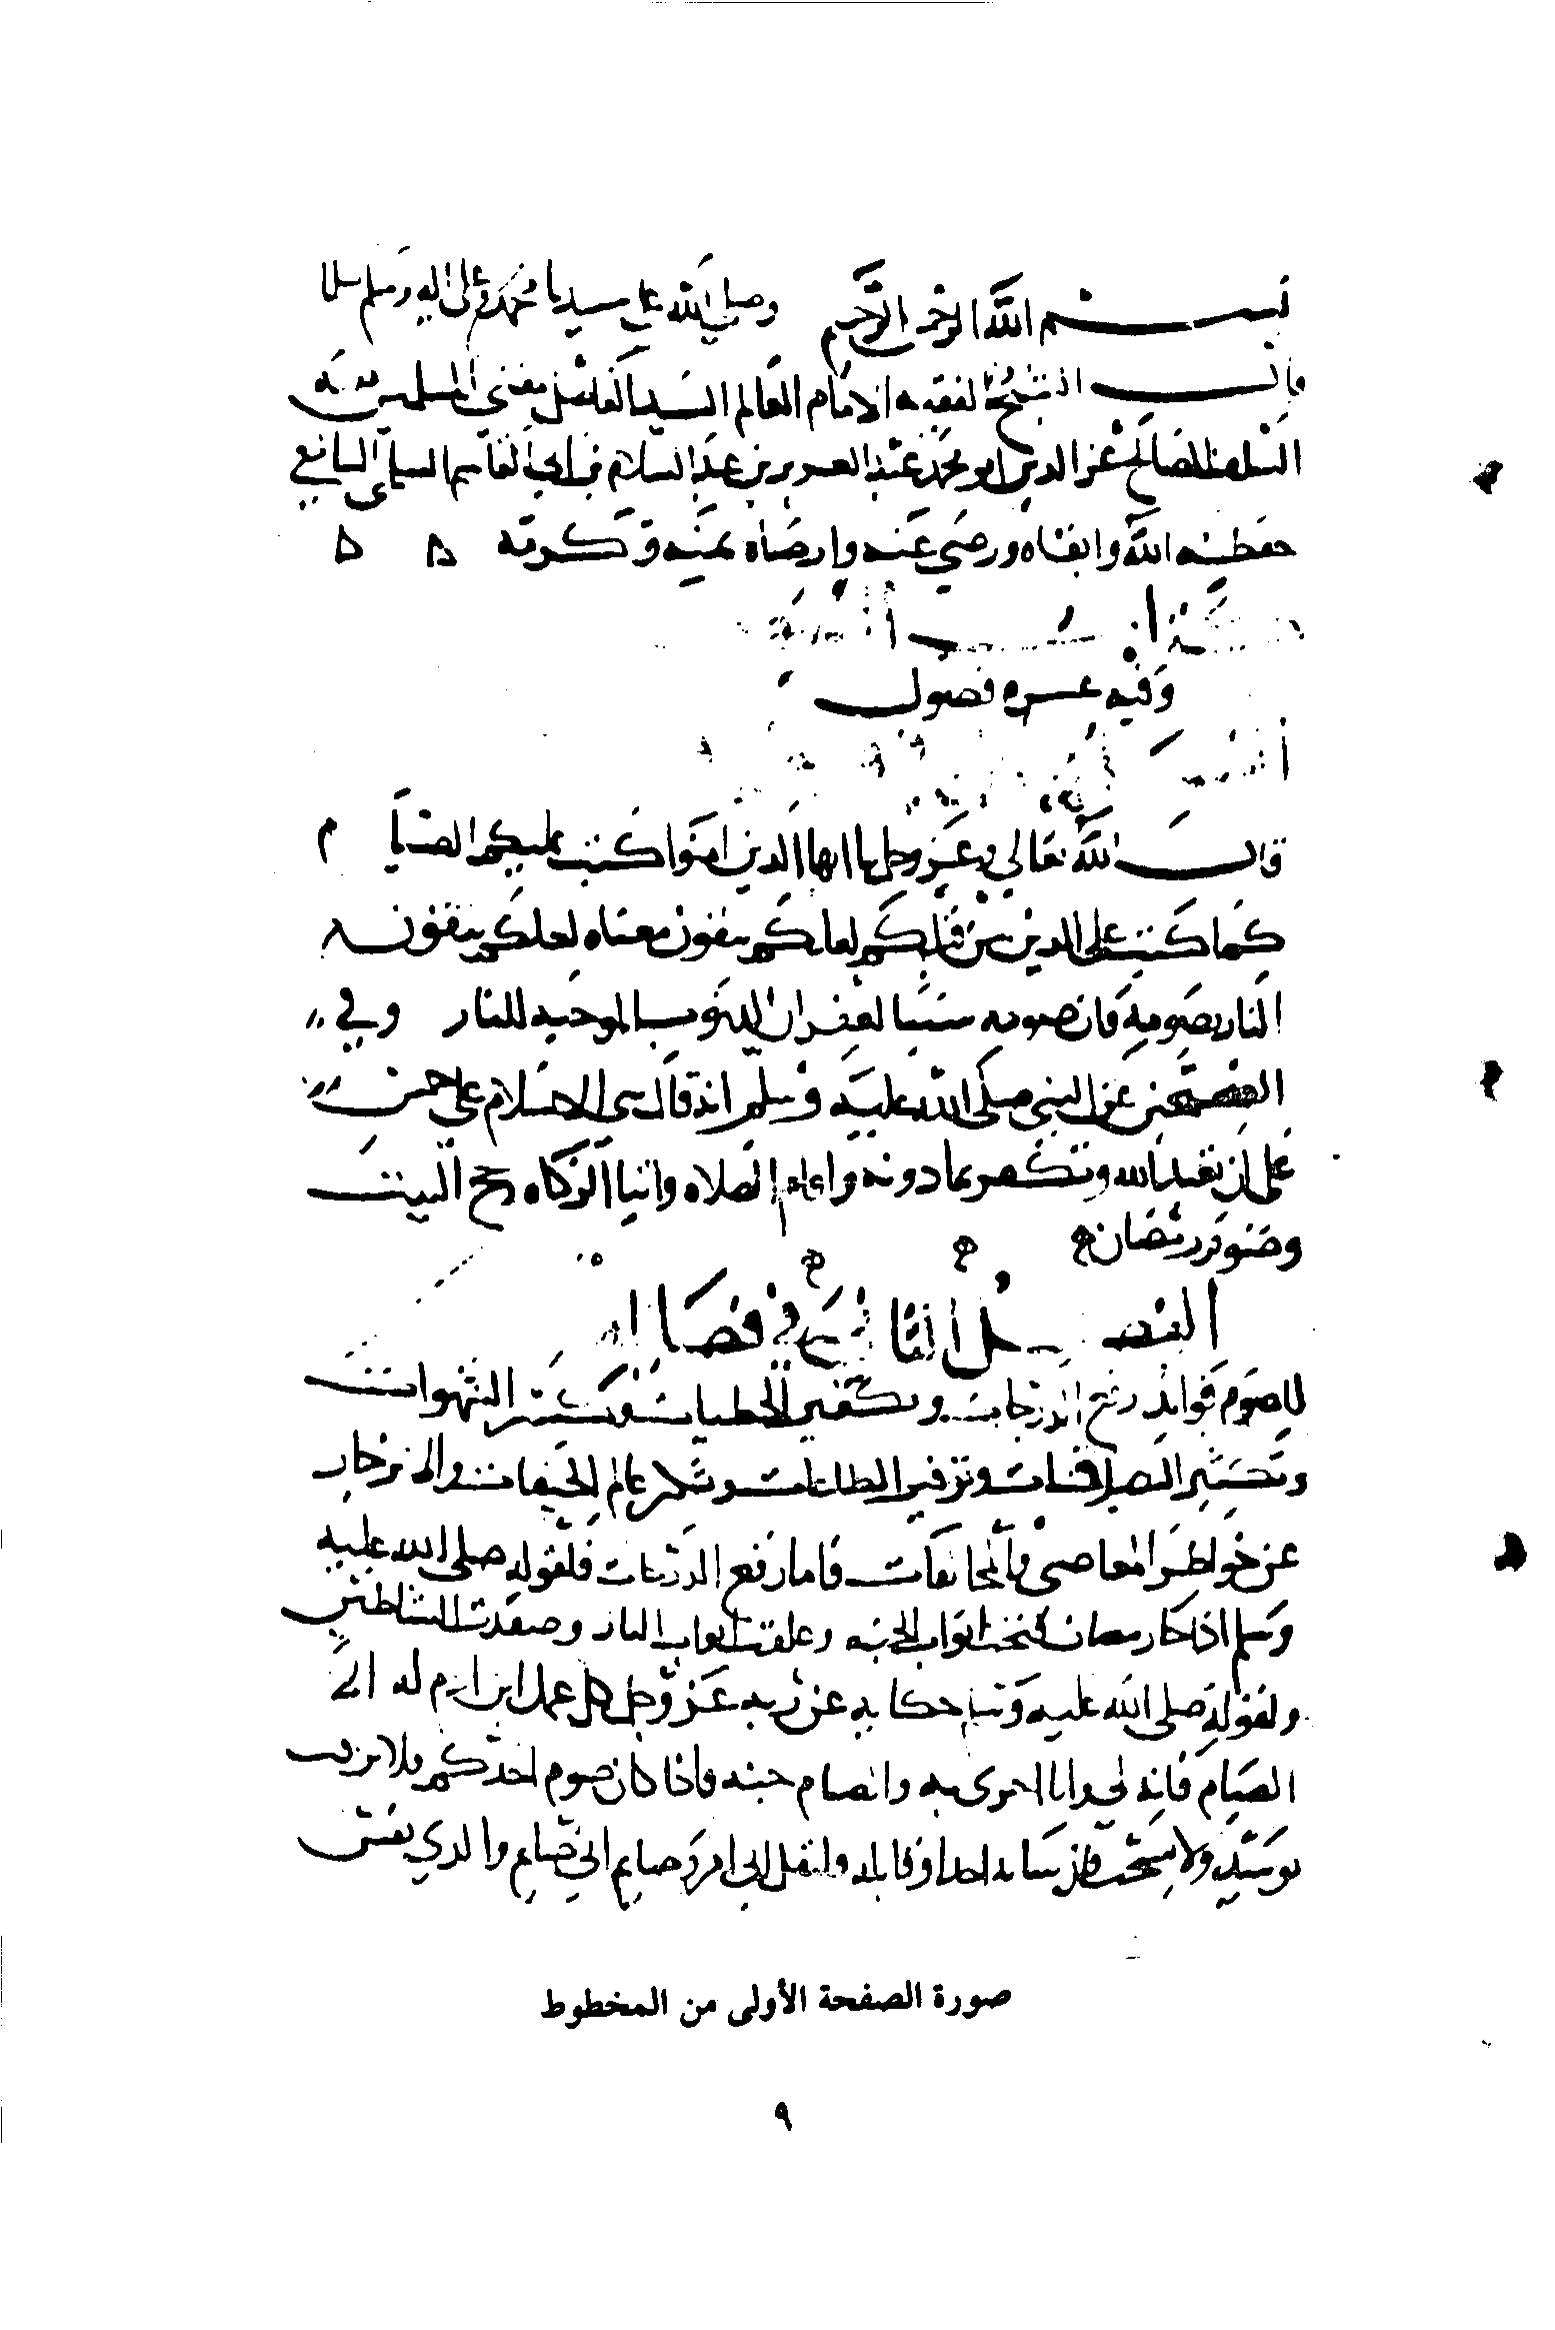 بسم الله الرحمن الرحيم وصلى الله على سيدنا محمد وعلى اله وسلم
قال الشيخ الفقيه الامام العالم السيد الفاضل مفتي المسلمين بقية
السلف الصالح عز الدين ابو محمد عبد العزيز بن عبد السلام بن ابي القاسم السلمي الشافعي
حفظه الله وابقاه ورضي عنه وارضاه بمنه وكرمه
وفيه عشره فصول
قال الله تعالى وعز وجل يا ايها الذين امنوا كتب عليكم الصيام
كما كتب على الذين من قبلكم لعلكم تتقون معناه لعلكم تتقون
النار بصومه فان صومه سببا لغفران الذنوب الموجبه للنار وفي
الصحيحين عن النبي صلى الله عليه وسلم انه قال بني الاسلام على خمس
على ان تعبد الله وتكفر بما دونه واقام الصلاه وايتا الزكاه وحج البيت
وصوم رمضان
الفصل الثاني في فضايله
للصوم فوايد رفع الدرجات وتكفير الخطيات وكسر الشهوات
وتكثير الصدقات وتوفير الطاعات وشكر عالم الخفيات والانزجار
عن خواطر المعاصي والمخالفات فاما رفع الدرجات فلقوله صلى الله عليه
وسلم اذا جا رمضان فتحت ابواب الجنه وغلقت ابواب النار وصفدت الشياطين
ولقوله صلى الله عليه وسلم حكايه عن ربه عز وجل كل عمل ابن ادم له الا
الصيام فانه لي وانا اجزي به والصيام جنه فاذا كان صوم احدكم فلا يرفث
يومئذ ولا يسخب فان سابه احد او قاتله فليقل اني امرؤ صايم اني صايم والذي نفس
صورة الصفحة الأولى من المخطوط
٩